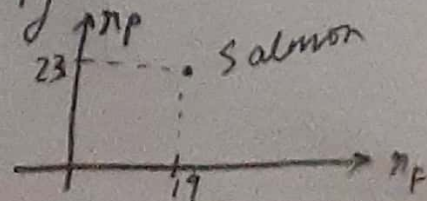 n_P
23 Salmon
19 n_F